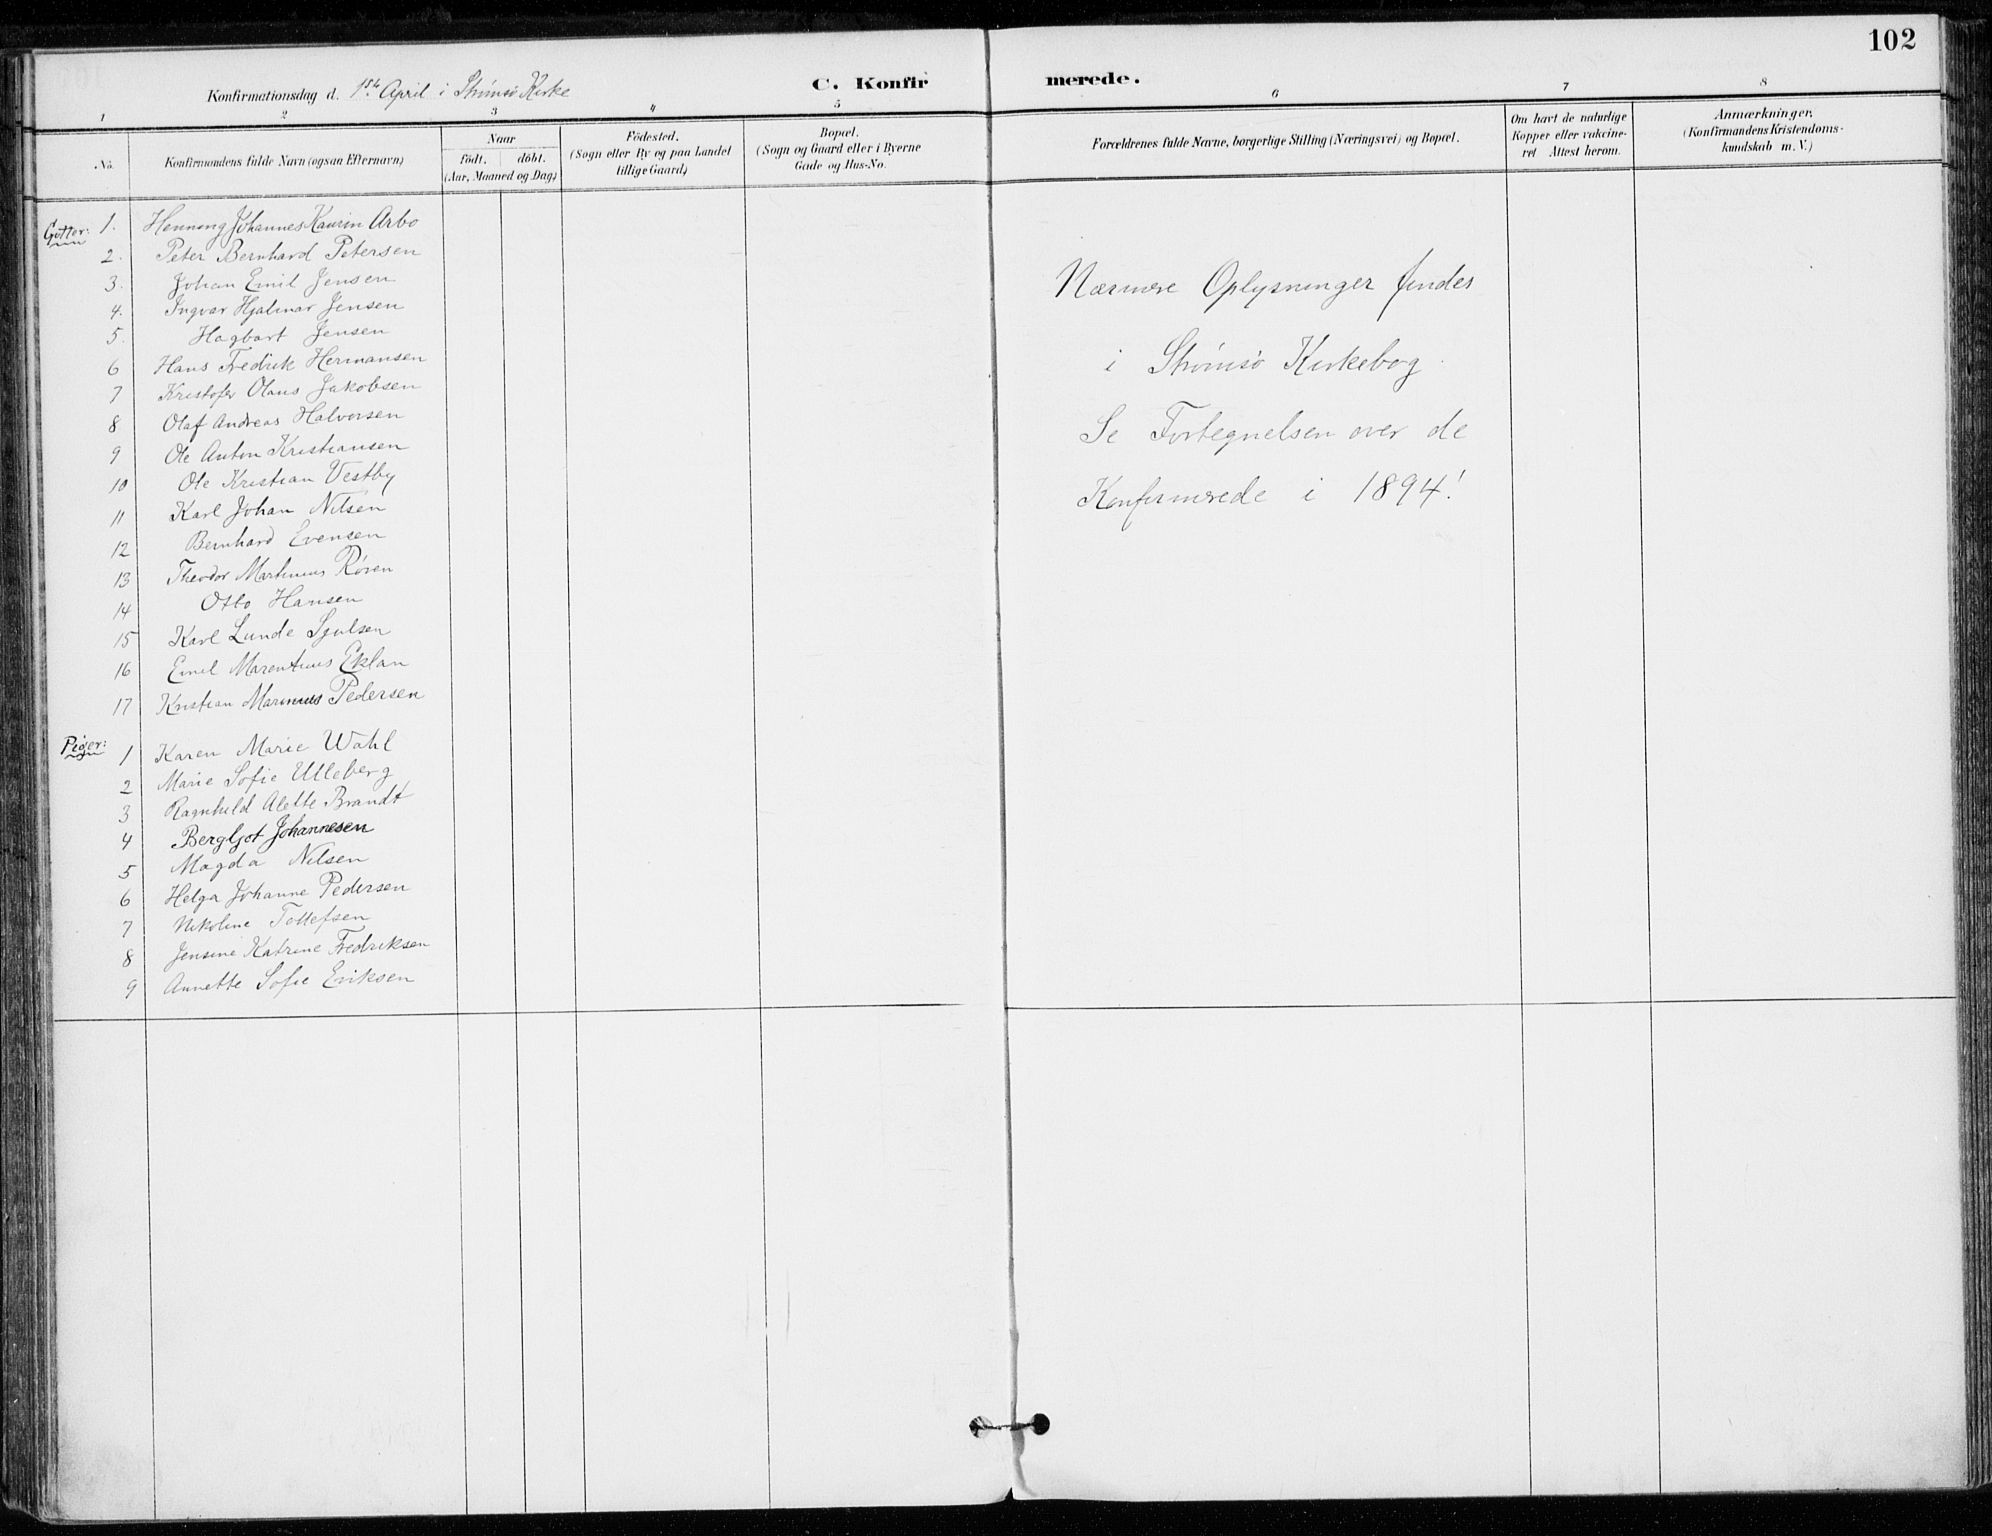 102
Konfirmationsdag d. 1ste April i Strømsø Kirke
C. Konfirmerede.
1 2 3 4 5 6 7 8
No.
Konfirmandens fulde Navn (ogsaa Efternavn)
Naar
födt. döbt.
(Aar, Maaned og Dag)
Födested.
(Sogn eller By og paa Landet
tillige Gaard)
Bopæl.
(Sogn og Gaard eller i Byerne
Gade og Hus-No.
Forældrenes fulde Navne, borgerlige Stilling (Næringsvei) og Bopæl.
Om havt de naturlige
Kopper eller vakcine-
ret Attest herom.
Anmærkninger.
(Konfirmandens Kristendoms-
kundskab m. V.)
Gutter: 1. Henning Johannes Kaurin Arbo
2. Peter Bernhard Petersen
3. Johan Emil Jensen
4. Ingvar Hjalmar Jensen
5. Hagbart Jensen
6 Hans Fredrik Hermansen
7 Kristofer Olaus Jakobsen
8 Olaf Andreas Halvorsen
9 Ole Anton Kristiansen
10 Ole Kristian Vestby
11 Karl Johan Nilsen
12 Bernhard Evensen
13 Theodor Martinius Røren
14 Otto Hansen
15 Karl Lunde
16 Emil Marentius Eklan
17 Kristian Marinius Pedersen
Piger: 1 Karen Marie Wahl
2 Marie Sofie Ulleberg
3 Ragnhild Alette Brandt
4 Bergljot Johannesen
5 Magda Nilsen
6 Helga Johanne Pedersen
7 Nikoline Tollefsen
8 Jensine Katrine Fredriksen
9 Annette Sofie Eriksen
Nærmere Oplysninger findes
i Strømsø Kirkebog.
Se Fortegnelsen over de
Konfirmerede i 1894!